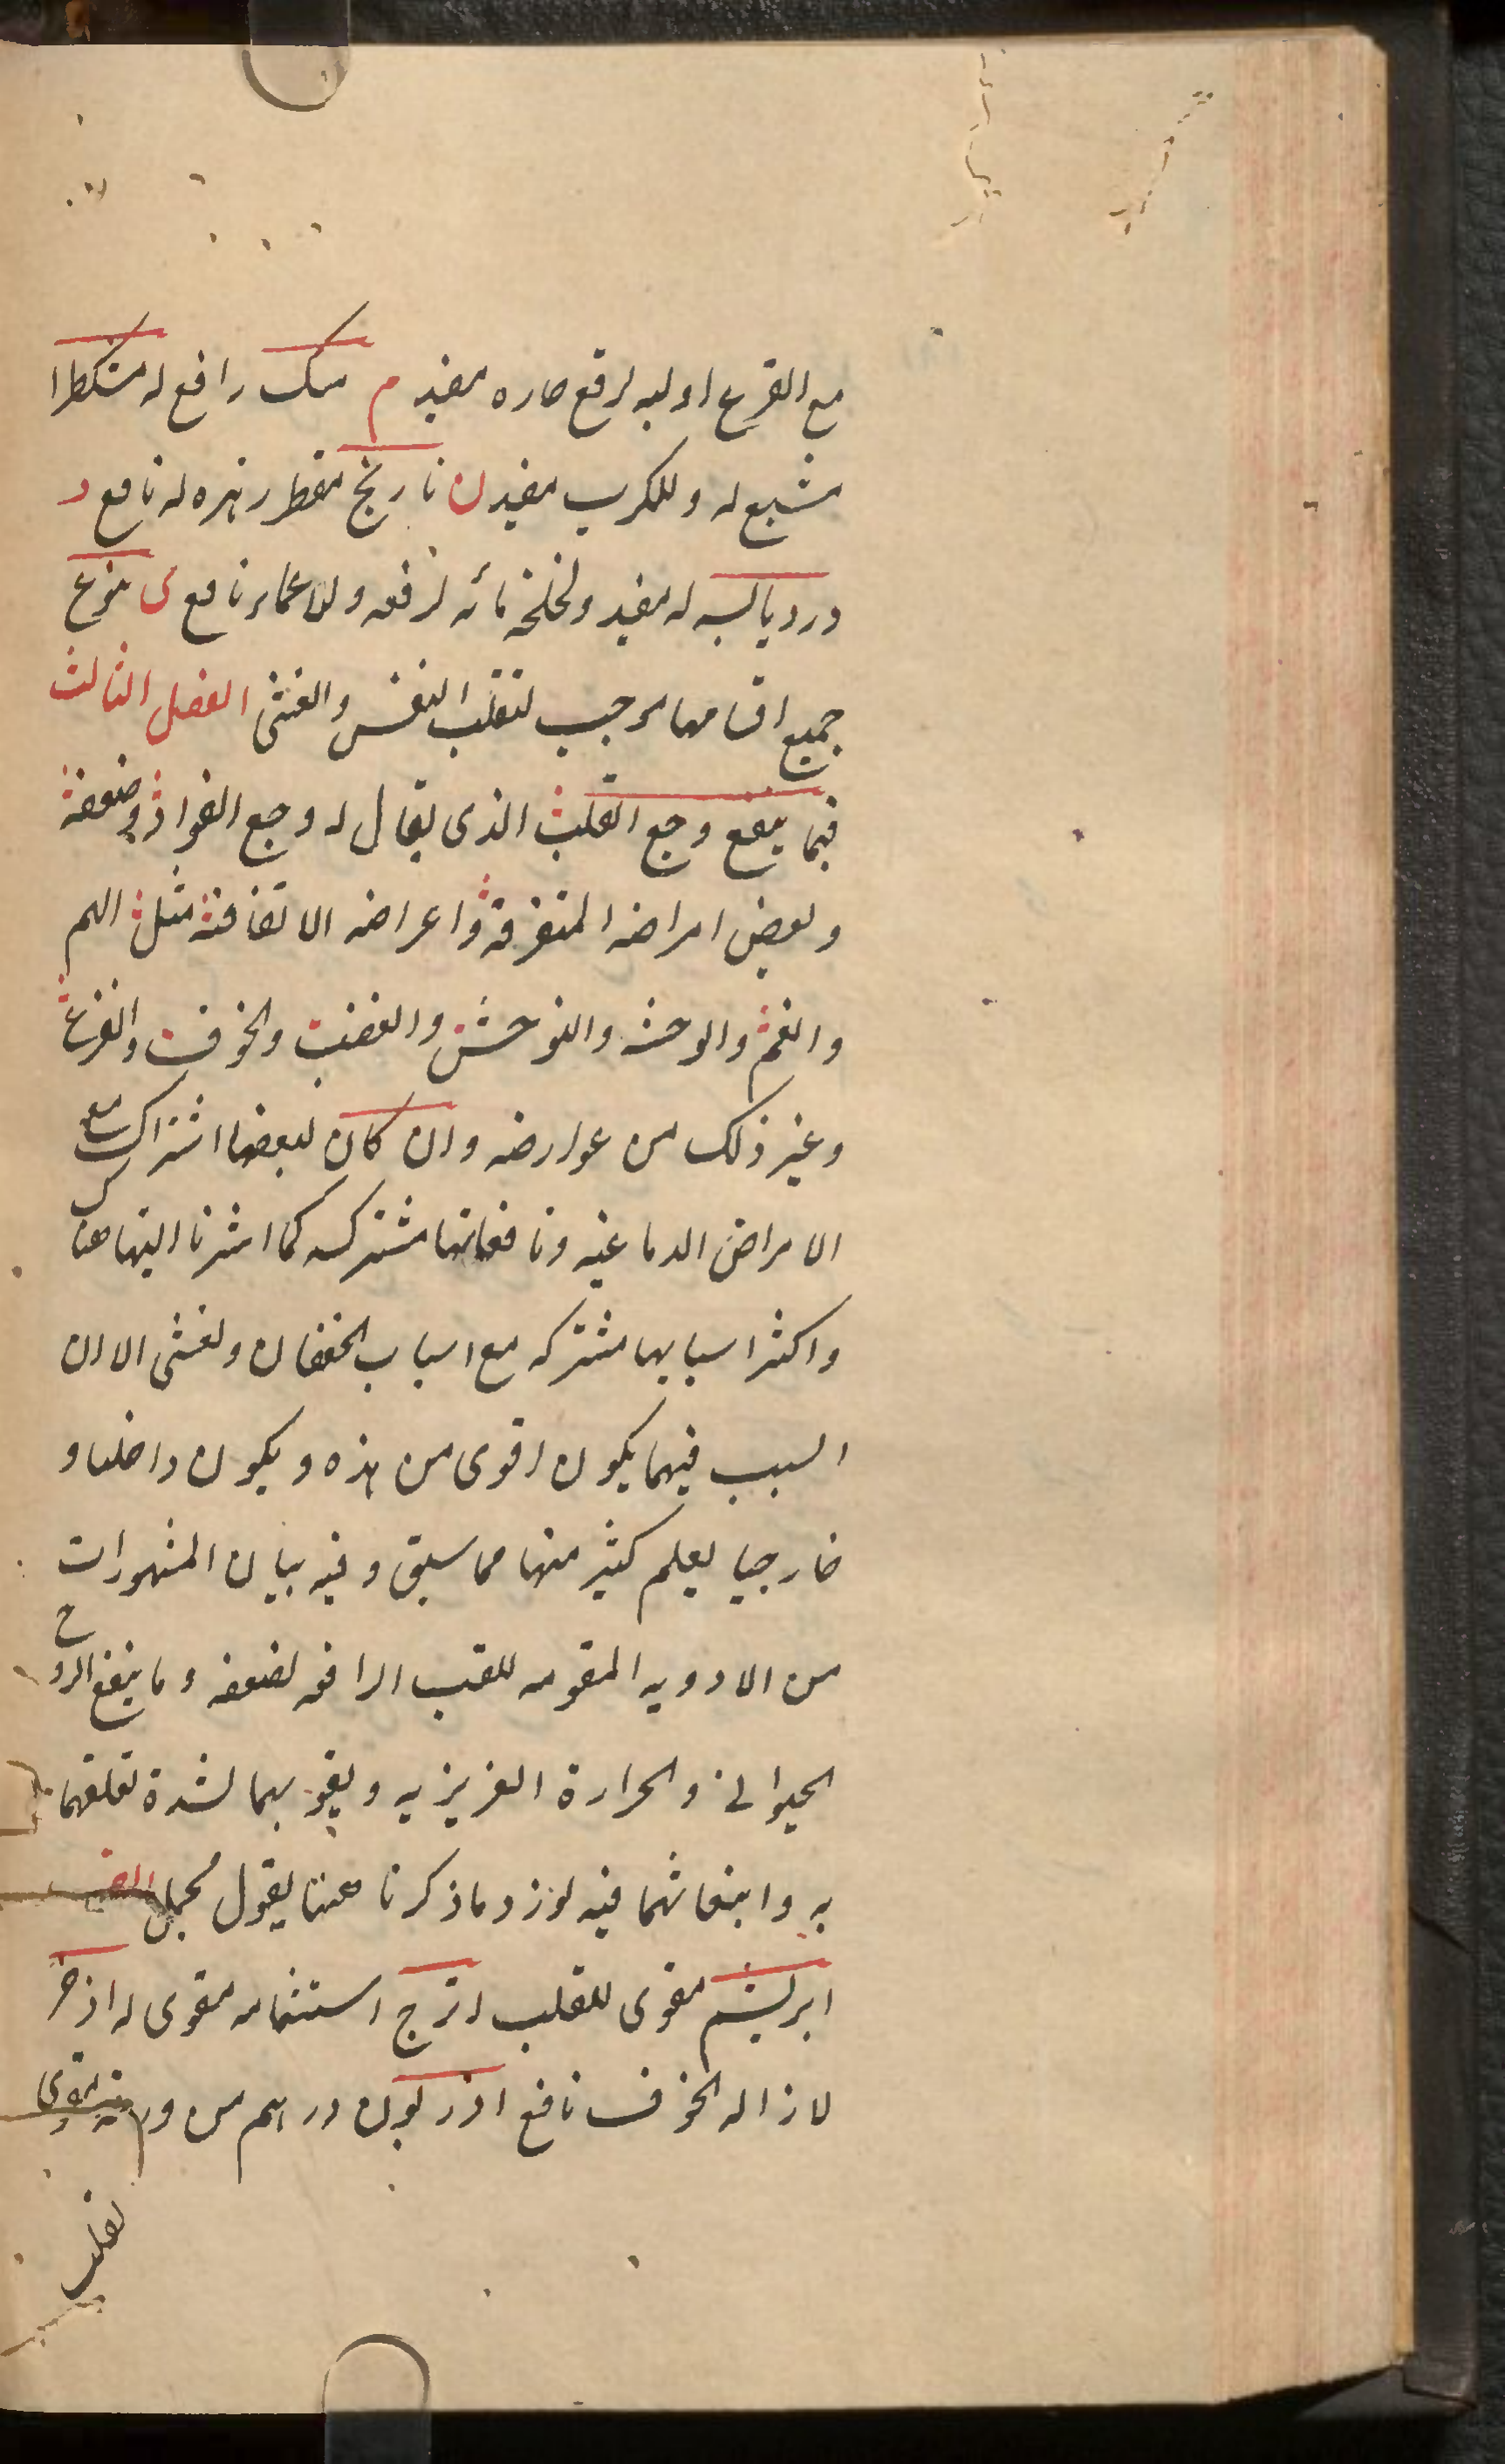 مع القرع او لبه لرفع حاره مفید م مسک رافع له مشکطرا
مشبع له و للکرب مفید ن نارنج مقطر زهره له نافع و
ورد یابسه له مفید و لخلخة مائه لرفعه و للاغماء نافع ی یتوع
جمیع اقسامها موجب لتقلب النفس و الغشی الفصل الثالث
فیما ینفع وجع القلب الذی یقال له وجع الفواد و ضعفه
و بعض امراضه المتفرقة و اعراضه الاتفاقیة مثل الهم
و الغم و الوحشه و التوحش و الغضب و الخوف و الفزع
و غیر ذلک من عوارضه و ان کان لبعضها اشتراک مع
الامراض الدماغیه و نافعاتها مشترکه کما اشرنا الیها هنا
و اکثر اسبابها مشترکه مع اسباب الخفقان و لغشی الا ان
السبب فیهما یکون اقوی من هذه و یکون داخلیا و
خارجیا یعلم کثیر منها مما سبق و فیه بیان المشهورات
من الادویه المقومه للقلب الرافعه لضعفه و ما ینفع الروح
الحیوانی و الحرارة الغریزیه و یقو بهما لشدة تعلقهما
به و انبعاثهما فیه لوزد ماذکرنا هنا یقول مجمل
ابریشم مقوی للقلب اترج استشمامه مقوی له اذخر
لازاله الخوف نافع اذریون درهم من ورقه یقوی
لقلب